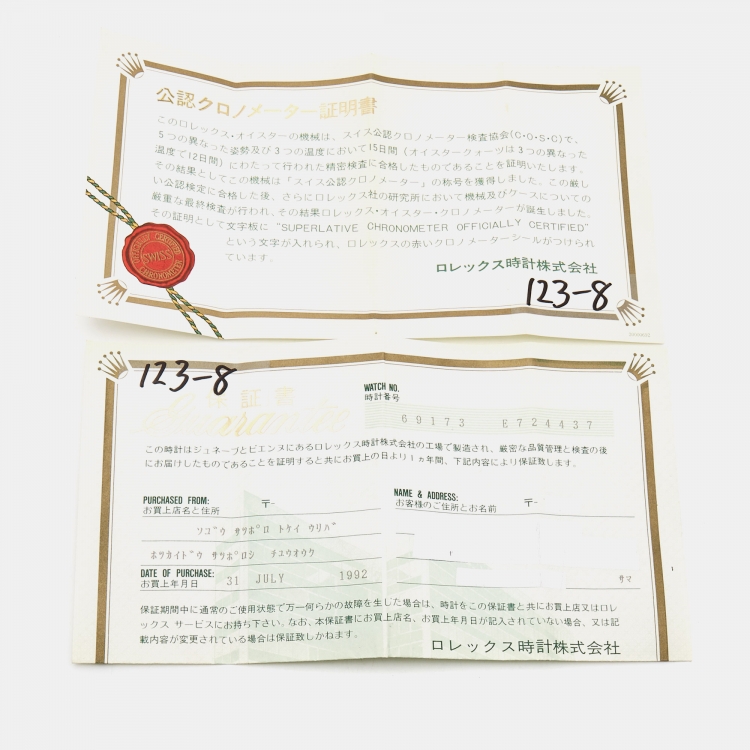 公認クロノメーター証明書
このロレックス・オイスターの機械は、スイス公認クロノメーター検査協会(C・O・S・C)で、
5つの異なった姿勢及び3つの温度において15日間(オイスタークォーツは3つの異なった
温度で12日間)にわたって行われた精密検査に合格したものであることを証明いたします。
その結果としてこの機械は「スイス公認クロノメーター」の称号を獲得しました。この厳し
い公認検定に合格した後、さらにロレックス社の研究所において機械及びケースについての
厳重な最終検査が行われ、その結果ロレックス・オイスター・クロノメーターが誕生しました。
その証明として文字板に "SUPERLATIVE CHRONOMETER OFFICIALLY CERTIFIED"
という文字が入れられ、ロレックスの赤いクロノメーターシールがつけられ
ています。
ロレックス時計株式会社
SWISS
CHRONOMETER
123-8
123-8
保証書
Guarantee
WATCH NO.
時計番号
69173 E724437
この時計はジュネーブとビエンヌにあるロレックス時計株式会社の工場で製造され、厳密な品質管理と検査の後
にお届けしたものであることを証明すると共にお買上の日より1ヵ年間、下記内容により保証致します。
PURCHASED FROM:
お買上店名と住所
〒-
ソゴウ サツポロ トケイ ウリバ
ホツカイドウ サツポロシ チユウオウク
DATE OF PURCHASE:
お買上年月日
31 JULY 1992
NAME & ADDRESS:
お客様のご住所とお名前
〒-
サマ
保証期間中に通常のご使用状態で万一何らかの故障を生じた場合は、時計をこの保証書と共にお買上店又はロレ
ックス サービスにお持ち下さい。なお、本保証書にお買上店名、お買上年月日が記入されていない場合、又は記
載内容が変更されている場合は保証致しかねます。
ロレックス時計株式会社